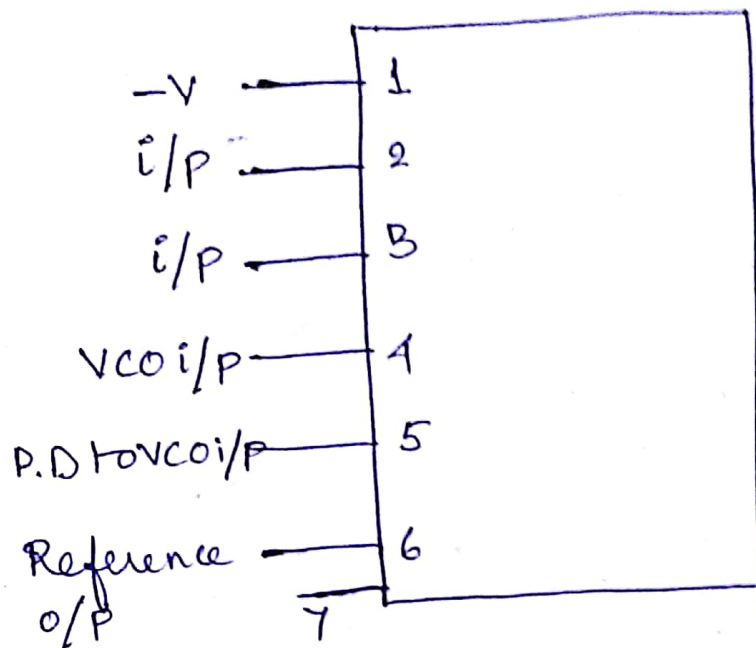 -V 1
i/p 2
i/p 3
VCO i/p 4
P.D to VCO i/p 5
Reference 6
o/p 7